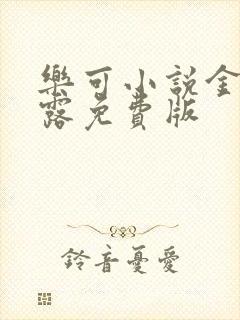 樂可小說金
露免費版
鈴音憂愛